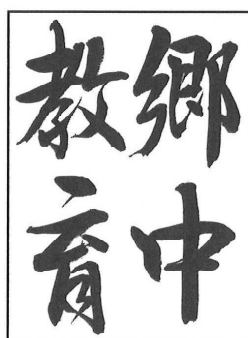 郷中
教育